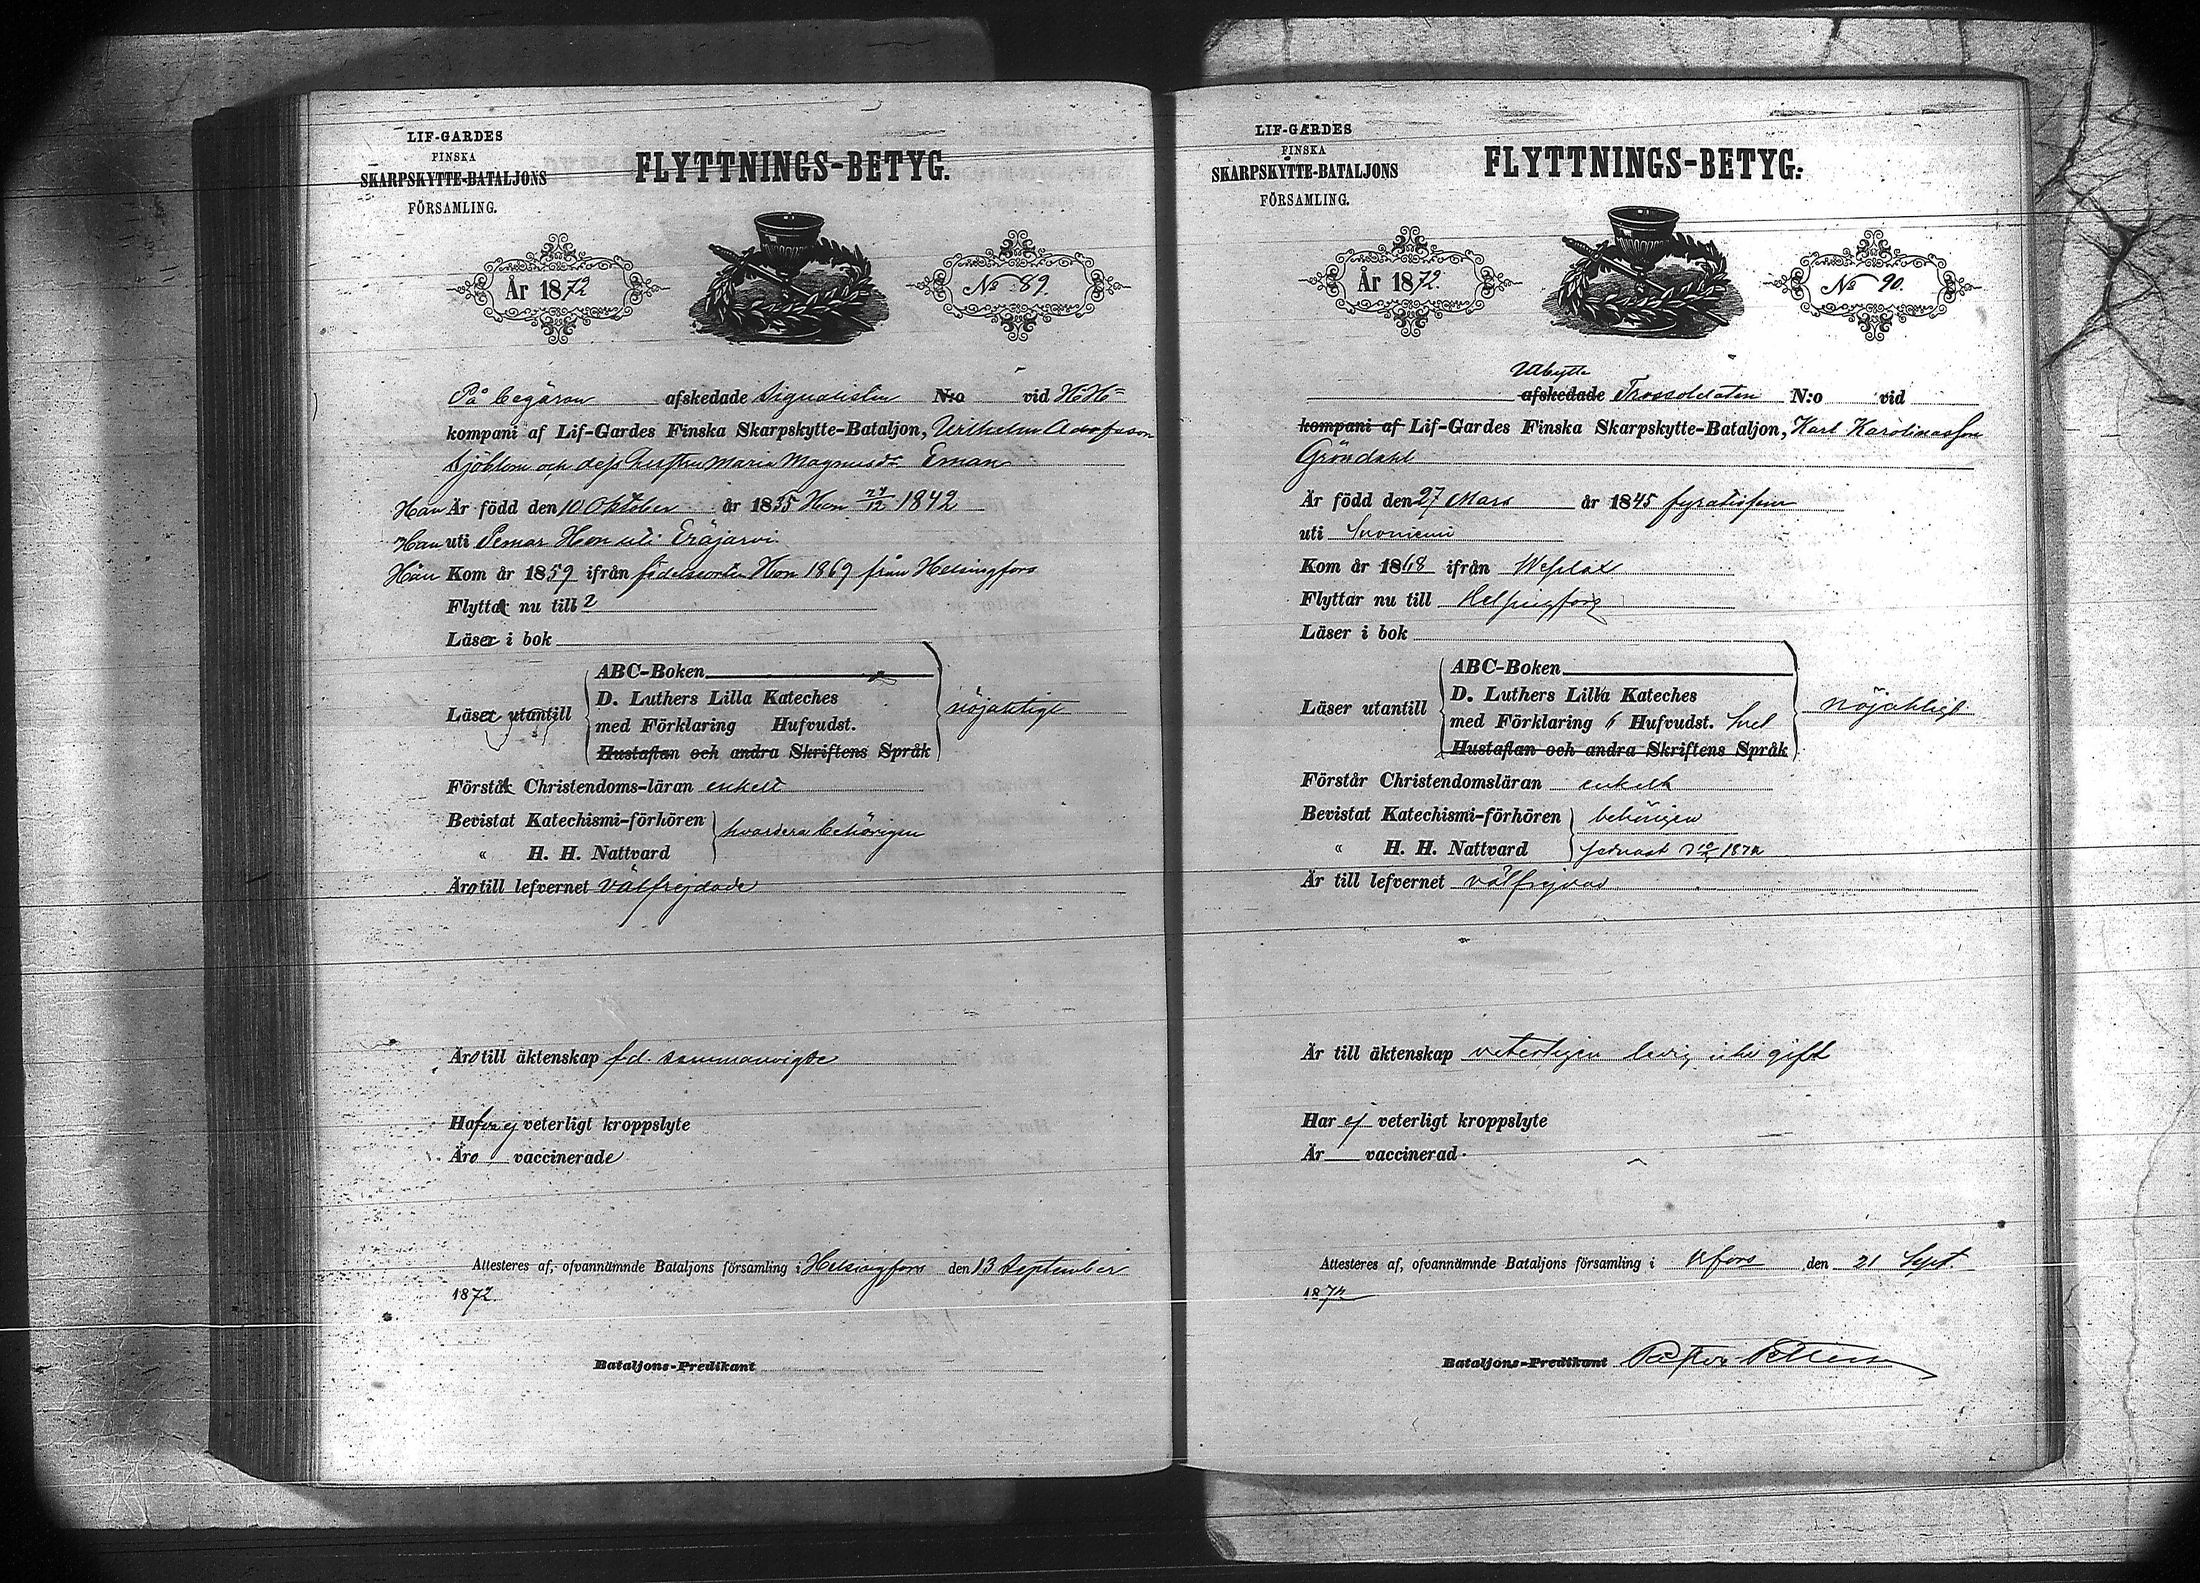 LIF-GARDES
FINSKA
SKARPSKYTTE-BATALJONS
FÖRSAMLING.
FLYTTNINGS-BETYG.
År 1872
No 89.
På begäran afskedade Signalisten N:o vid
kompani af Lif-Gardes Finska Skarpskytte-Bataljon, Wilhelm Adolfsson
Sjöblom och dess hustru Maria Magnusdr Eman
Han Är född den 10 Oktober år 1835 Hon 24/12 1842
Han uti Pemar Hon uti Eräjärvi
Han Kom år 1859 ifrån födelseorten Hon 1869 från Helsingfors
Flytta nu till 2
Läser i bok
Läser utantill
ABC-Boken
D. Luthers Lilla Kateches
med Förklaring Hufvudst.
Hustaflan och andra Skriftens Språk
nöjaktigt
Förstå Christendoms-läran enkelt
Bevistat Katechismi-förhören
hvardera behörigen
“ H. H. Nattvard
Äro till lefvernet välfrejdade
Äro till äktenskap f.d. sammanvigde
Hafva ej veterligt kroppslyte
Äro vaccinerade
Attesteres af, ofvannämnde Bataljons församling i Helsingfors den 13 September
1872.
Bataljons-Predikant
LIF-GARDES
FINSKA
SKARPSKYTTE-BATALJONS
FÖRSAMLING.
FLYTTNINGS-BETYG.
År 1872.
No 90.
Utbytte
afskedade Trossoldaten N:o vid
kompani af Lif-Gardes Finska Skarpskytte-Bataljon, Karl Karolinasson
Gröndahl
Är född den 27 Mars år 1845 fyratifem
uti Suoniemi
Kom år 1868 ifrån Wesilax
Flyttar nu till Helsingfors
Läser i bok
Läser utantill
ABC-Boken
D. Luthers Lilla Kateches
med Förklaring 6 Hufvudst.
Hustaflan och andra Skriftens Språk
nöjaktigt
Förstår Christendomsläran enkelt
Bevistat Katechismi-förhören behörigen
“ H. H. Nattvard senast 1872
Är till lefvernet välfrejdad
Är till äktenskap veterligen ledig icke gift
Har ej veterligt kroppslyte
Är vaccinerad
Attesteres af, ofvannämnde Bataljons församling i Hfors den 21 Sept.
1872
Bataljons-Predikant